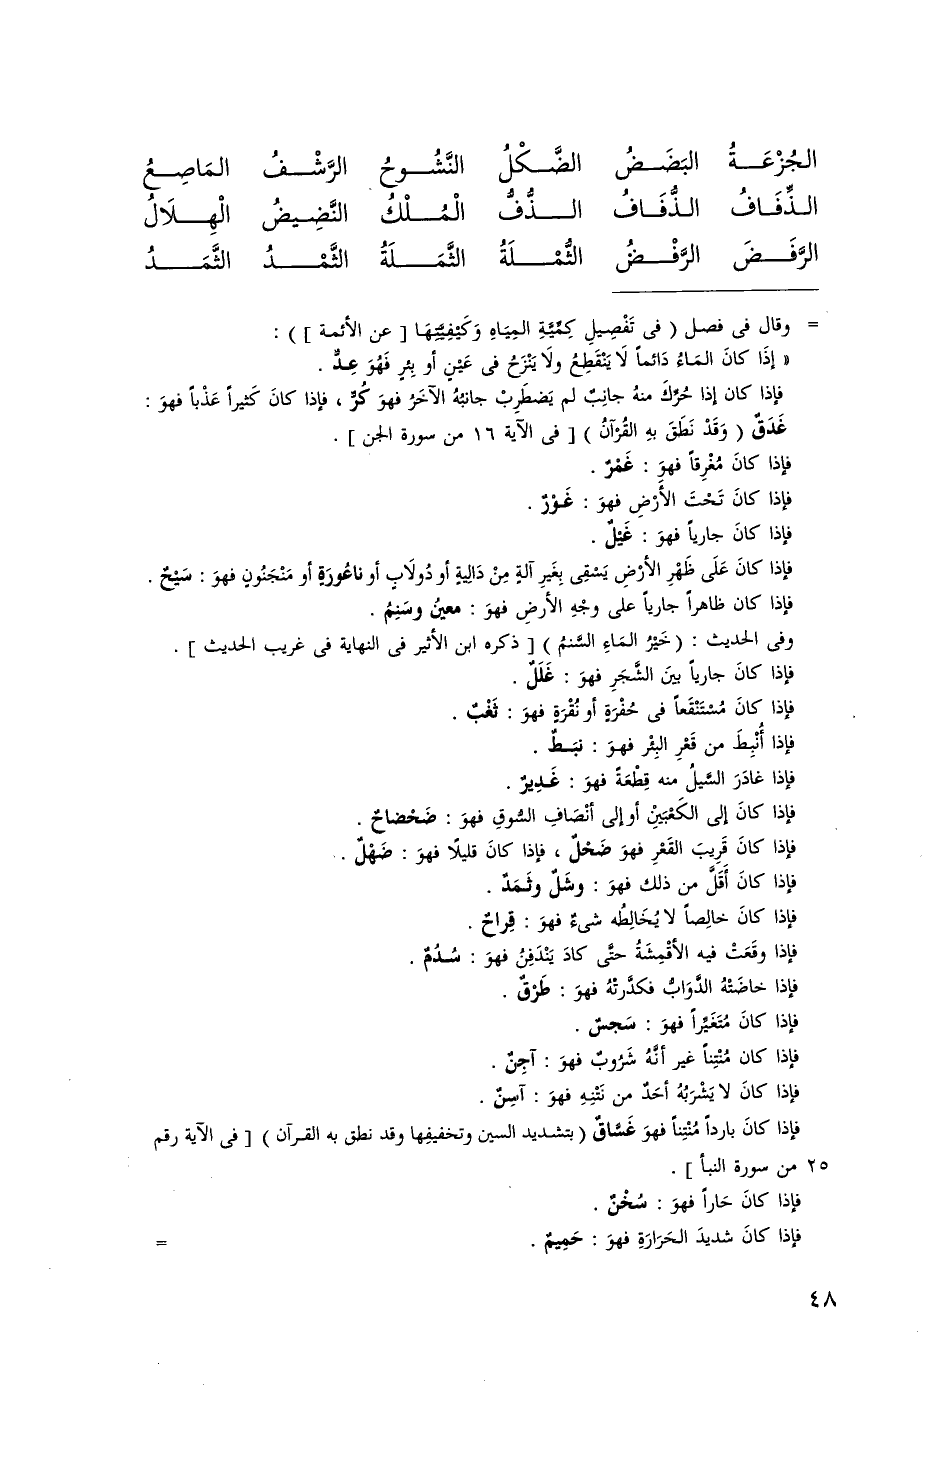 الجُزْعَـــةُ البَضَـــضُ الضَّـــكْلُ النَّشُـــوحُ الرَّشْـــفُ المَاصِـــعُ
الـذِّفَـافُ الـذُّفَـافُ الـــذُّفُّ الْمُـــلْكُ النَّضِـيضُ الْهِـــلَالُ
الرَّفَـــضَ الرَّفْـــضُ الثُّمْـــلَةُ الثَّمَـــلَةُ الثَّمْـــدُ الثَّمَـــدُ
= وقال فى فصل ( فى تَفْصِيلِ كِمِّيَّةِ المِيَاهِ وَكَيْفِيَّتِهَا [ عن الأئمة ] ) :
« إذَا كانَ المَاءُ دَائماً لَا يَنْقَطِعُ ولَا يَنْزَحُ فى عَيْنٍ أو بِئْرٍ فَهُوَ عِدٌّ .
فإذا كان إذا حُرِّكَ منهُ جانِبٌ لم يَضطَرِبْ جانبُهُ الآخَرُ فهوَ كُرٌّ ، فإذا كانَ كَثيراً عَذْباً فهوَ :
غَدَقٌ ( وَقَدْ نَطَقَ بِهِ القُرْآنُ ) [ فى الآية ١٦ من سورة الجن ] .
فإذا كانَ مُغْرِقاً فهوَ : غَمْرٌ .
فإذا كانَ تَحْتَ الأَرْضِ فهوَ : غَوْرٌ .
فإذا كانَ جارياً فهوَ : غَيْلٌ .
فإذا كانَ عَلَى ظَهْرِ الأرْضِ يَسْقِى بِغَيرِ آلَةٍ مِنْ دَالِيةٍ أو دُولَابٍ أو ناعُورَةٍ أو مَنْجَنُونٍ فهوَ : سَيْحٌ .
فإذا كان ظاهراً جارياً على وجْهِ الأرضِ فهوَ : معينٌ وسَنِمٌ .
وفى الحديث : ( خَيْرُ المَاءِ السَّنمُ ) [ ذكره ابن الأثير فى النهاية فى غريب الحديث ] .
فإذا كانَ جارياً بينَ الشَّجَرِ فهوَ : غَلَلٌ .
فإذا كانَ مُسْتَنْقَعاً فى حُفْرَةٍ أو نُقْرَةٍ فهوَ : ثَغْبٌ .
فإذا أُنْبِطَ من قَعْرِ البِئْرِ فهوَ : نَبَـطٌ .
فإذا غادَرَ السَّيلُ منه قِطْعَةً فهوَ : غَدِيرٌ .
فإذا كانَ إلى الكَعْبَيْنِ أو إلى أَنْصَافِ السُّوقِ فهوَ : ضَحْضاحٌ .
فإذا كانَ قَرِيبَ القَعْرِ فهوَ ضَحْلٌ ، فإذا كانَ قليلًا فهوَ : ضَهْلٌ .
فإذا كانَ أَقَلَّ من ذلك فهوَ : وشَلٌ وثَمَدٌ .
فإذا كانَ خالِصاً لا يُخَالِطُه شىءٌ فهوَ : قِراحٌ .
فإذا وقَعَتْ فيه الأقْمِشَةُ حتَّى كادَ يَنْدَفِنُ فهوَ : سُدُمٌ .
فإذا خاضَتْهُ الدَّوَابُّ فكدَّرتْهُ فهوَ : طَرْقٌ .
فإذا كانَ مُتَغَيِّراً فهوَ : سَجِسٌ .
فإذا كان مُنْتِناً غير أنَّهُ شَرُوبٌ فهوَ : آجِنٌ .
فإذا كانَ لا يَشْرَبُهُ أحَدٌ من نَتْنِهِ فهوَ : آسِنٌ .
فإذا كانَ بارداً مُنْتِناً فهوَ غَسَّاقٌ ( بتشديد السين وتخفيفها وقد نطق به القرآن ) [ فى الآية رقم
٢٥ من سورة النبأ ] .
فإذا كانَ حَاراً فهوَ : سُخْنٌ .
فإذا كانَ شديدَ الحَرَارَةِ فهوَ : حَمِيمٌ . =
٤٨